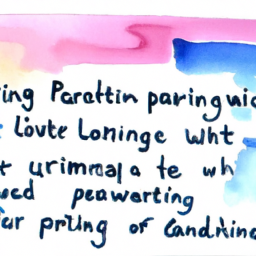 ing Parettin paring wic
Livte Loninge wht
urimmala te wh
ed peawerting
ur prling of Candhine